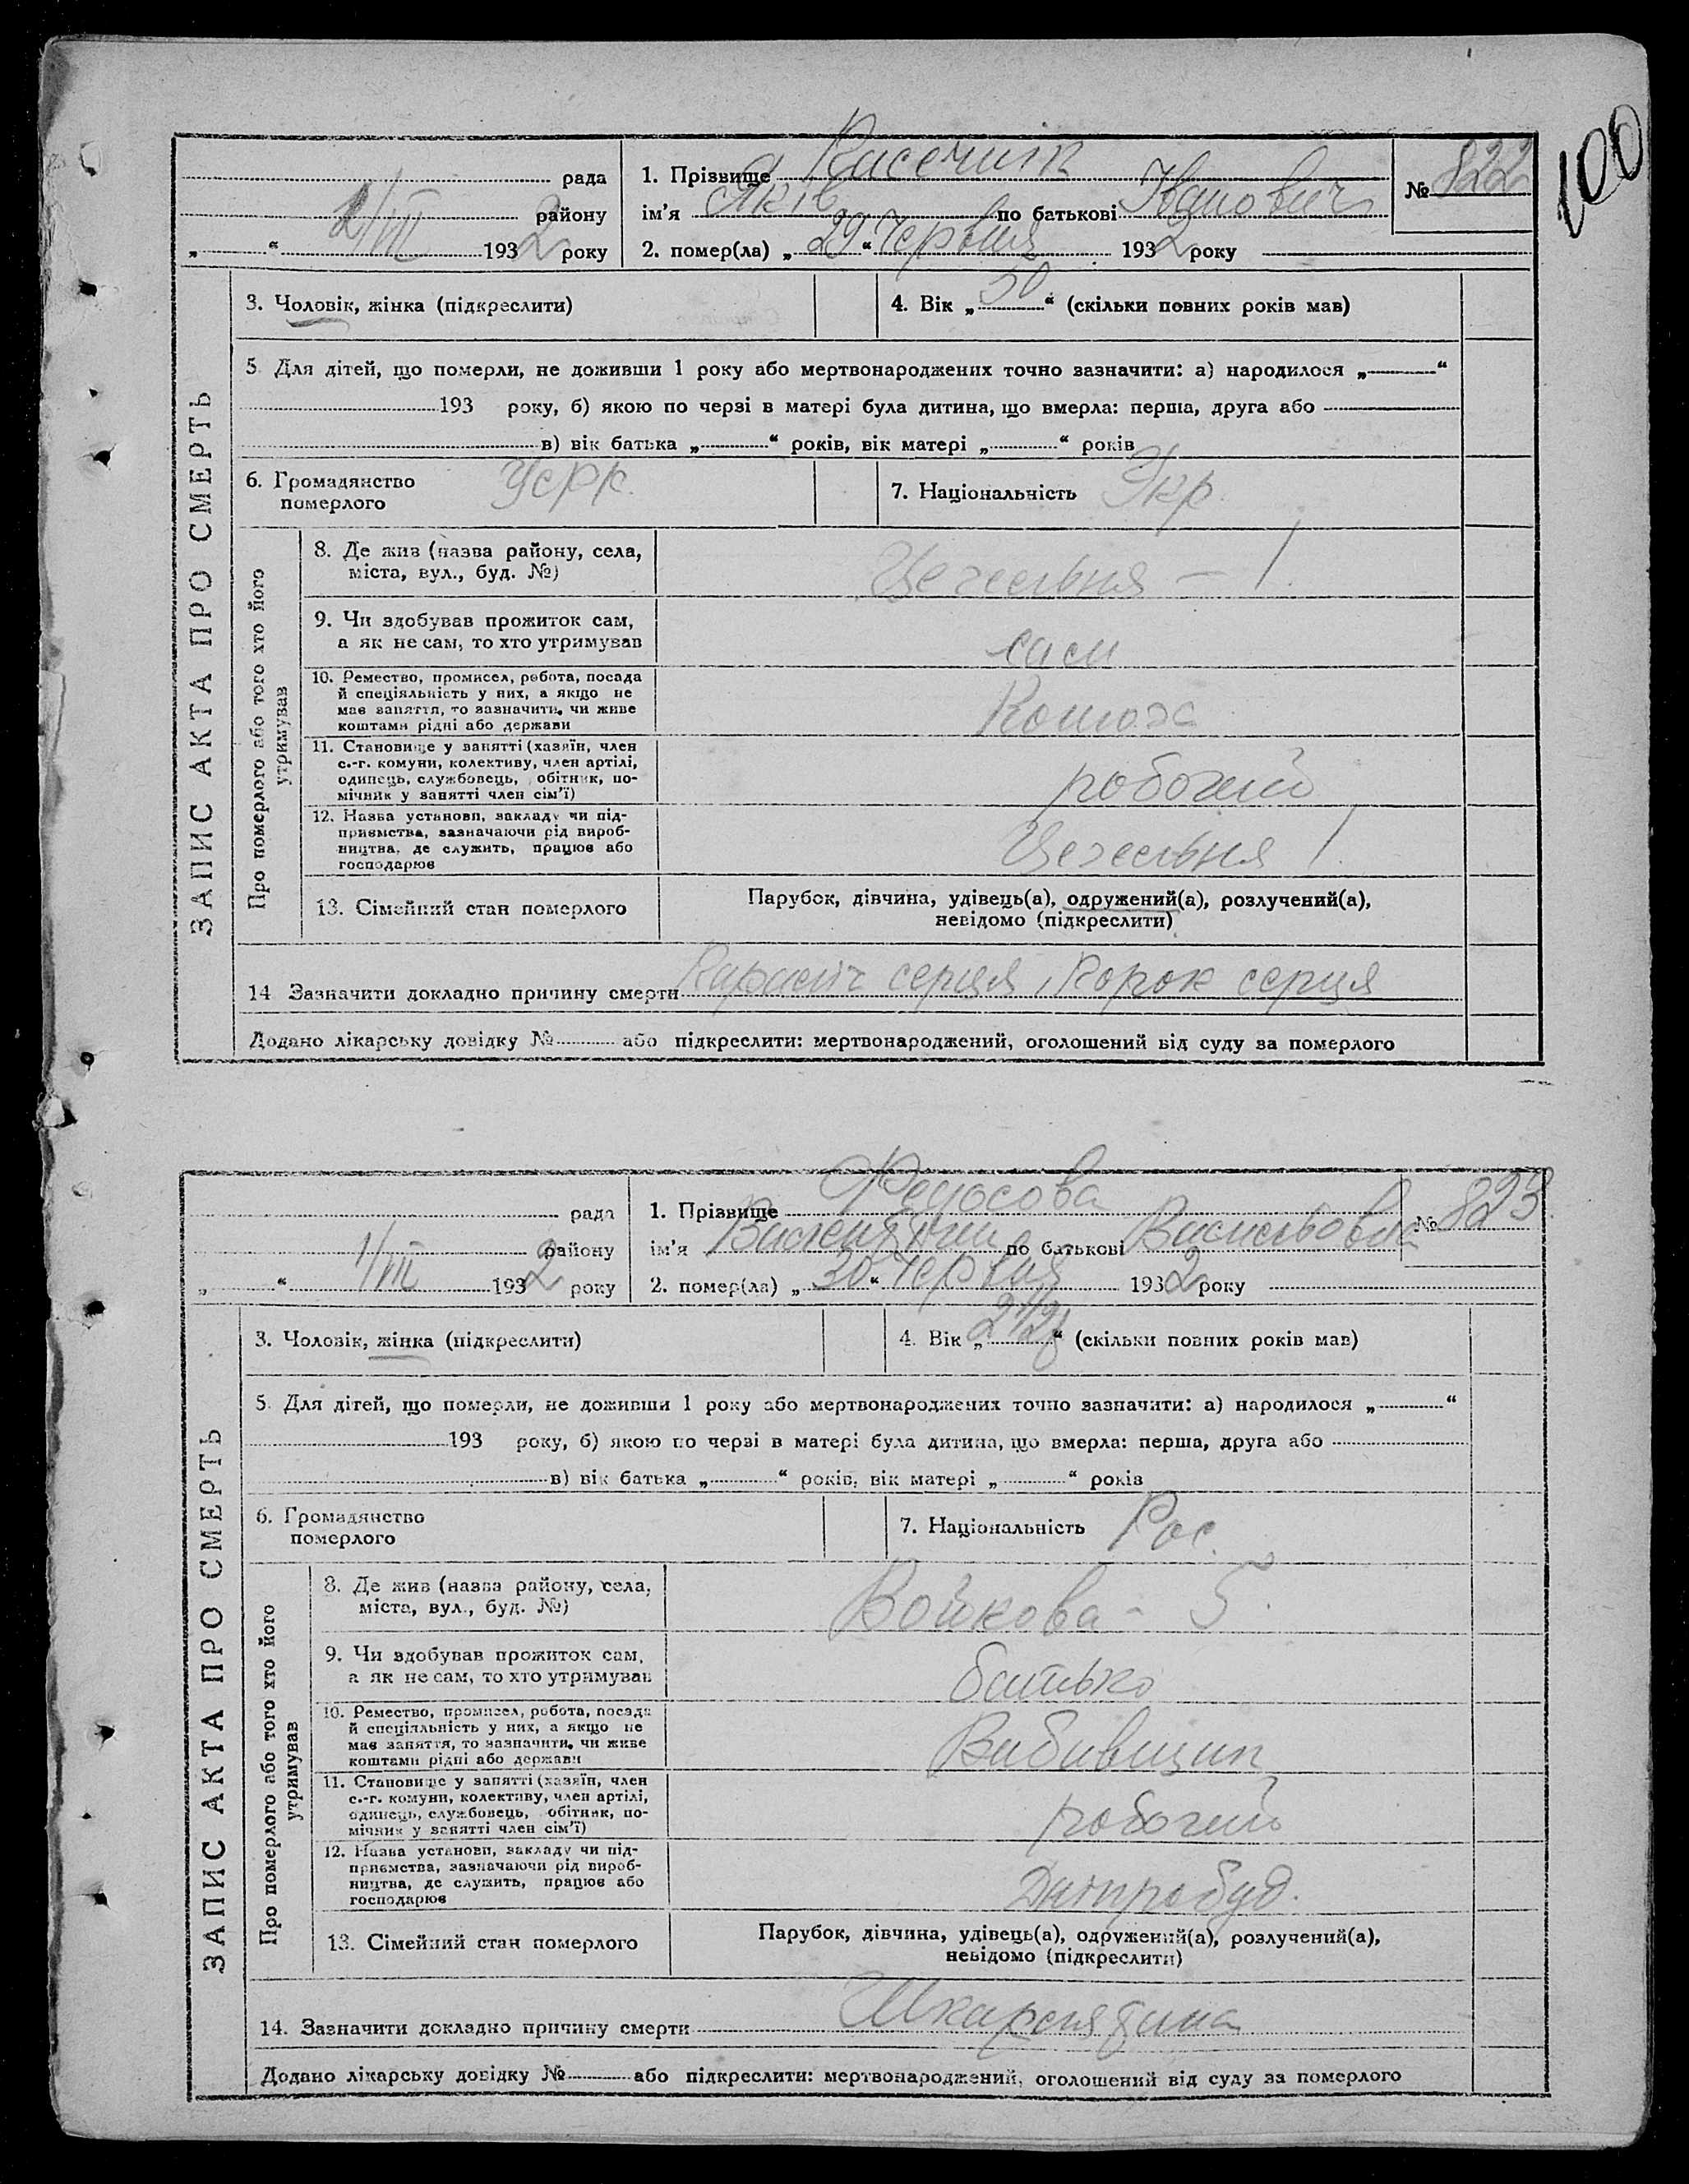 100
рада
району
1/VII 1932 року
1. Прізвище Касечнік
ім'я Яків по батькові Іванович
№ 822
2. помер(ла) „29“ Червня 1932 року
ЗАПИС АКТА ПРО СМЕРТЬ
3. Чоловік, жінка (підкреслити)
4. Вік „50“ (скільки повних років мав)
5. Для дітей, що померли, не доживши 1 року або мертвонароджених точно зазначити: а) народилося „ “
193 року, б) якою по черзі в матері була дитина, що вмерла: перша, друга або
в) вік батька „ “ років, вік матері „ “ років
6. Громадянство померлого УСРР.
7. Національність Укр.
Про померлого або того хто його утримував
8. Де жив (назва району, села,
міста, вул., буд. №)
Цегельня – 1.
9. Чи здобував прожиток сам,
а як не сам, то хто утримував
сам
10. Ремество, промисел, робота, посада
й спеціяльність у них, а якщо не
має заняття, то зазначити, чи живе
коштами рідні або держави
11. Становище у занятті (хазяїн, член
с.-г. комуни, колективу, член артілі,
одинець, службовець, обітник, по-
мічник у занятті член сім'ї)
робочий
12. Назва установи, закладу чи під-
приємства, зазначаючи рід вироб-
ництва, де служить, працює або
господарює
Цегельня 1.
13. Сімейний стан померлого
Парубок, дівчина, удівець(а), одружений(а), розлучений(а),
невідомо (підкреслити)
14 Зазначити докладно причину смерти Параліч серця, Порок серця
Додано лікарську довідку № або підкреслити: мертвонароджений, оголошений від суду за померлого
рада
району
1/VII 1932 року
1. Прізвище Федосова
ім'я Валентіни по батькові Васильовна
№ 823
2. помер(ла) „30“ Червня 1932 року
ЗАПИС АКТА ПРО СМЕРТЬ
3. Чоловік, жінка (підкреслити)
4. Вік „2 1/2“ (скільки повних років мав)
5. Для дітей, що померли, не доживши 1 року або мертвонароджених точно зазначити: а) народилося „ “
193 року, б) якою по черзі в матері була дитина, що вмерла: перша, друга або
в) вік батька „ “ років, вік матері „ “ років
6. Громадянство померлого
7. Національність Рос.
Про померлого або того хто його утримував
8. Де жив (назва району, села,
міста, вул., буд. №)
Войкова – 5.
9. Чи здобував прожиток сам,
а як не сам, то хто утримував
батько
10. Ремество, промисел, робота, посада
й спеціяльність у них, а якщо не
має заняття, то зазначити, чи живе
коштами рідні або держави
Вибивщик
11. Становище у занятті (хазяїн, член
с.-г. комуни, колективу, член артілі,
одинець, службовець, обітник, по-
мічник у занятті член сім'ї)
робочий
12. Назва установи, закладу чи під-
приємства, зазначаючи рід вироб-
ництва, де служить, працює або
господарює
Дніпробуд.
13. Сімейний стан померлого
Парубок, дівчина, удівець(а), одружений(а), розлучений(а),
невідомо (підкреслити)
14. Зазначити докладно причину смерти Шкарлятина
Додано лікарську довідку № або підкреслити: мертвонароджений, оголошений від суду за померлого